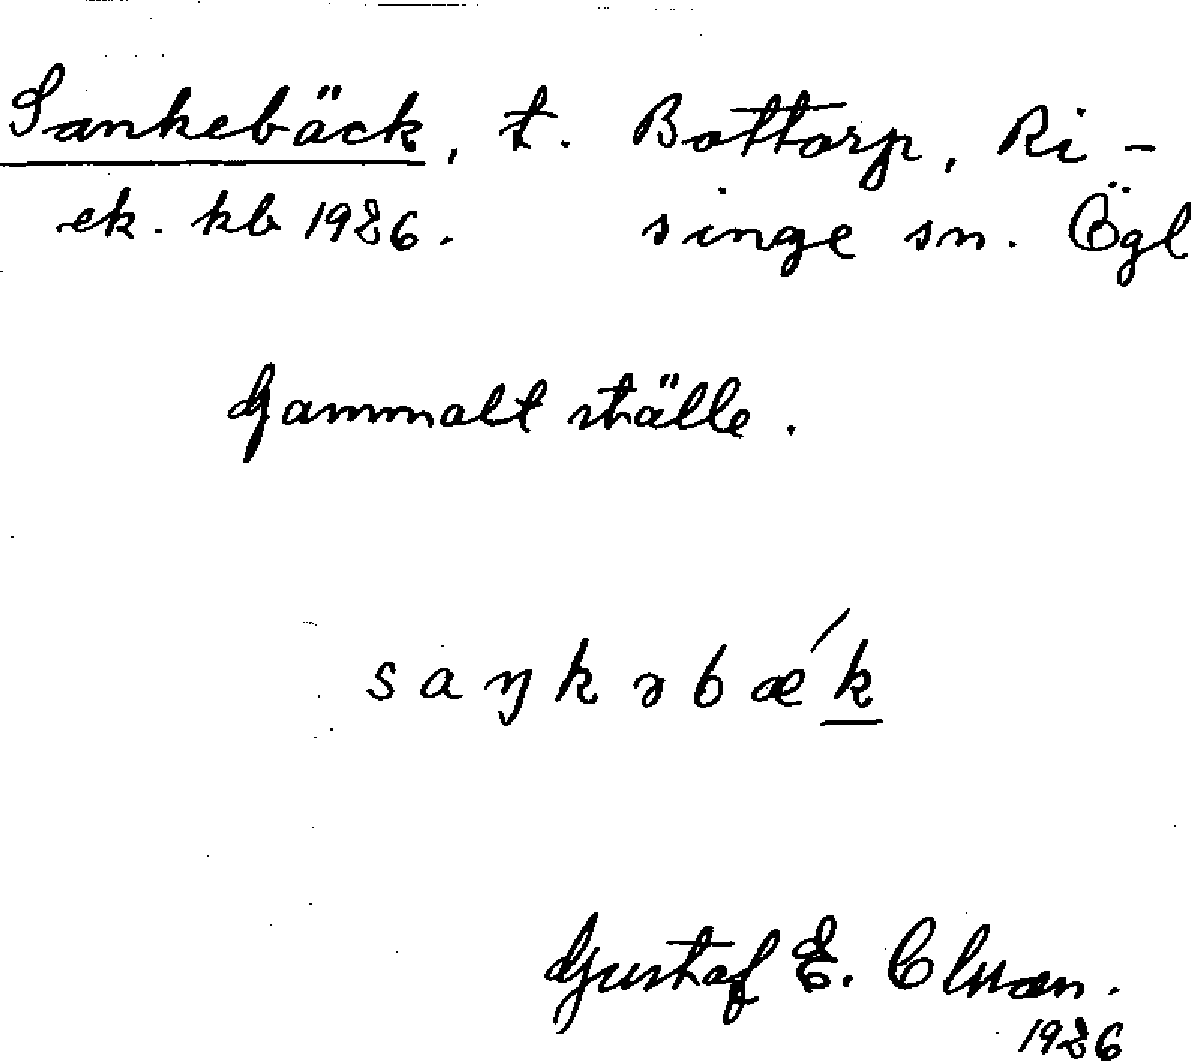 Sankebäck, t. Bottorp, Ri-
ek. kb 1926. singe sn. Ögl
Gammalt ställe.
saŋkəbæ´k
Gustaf E. Olsson.
1926